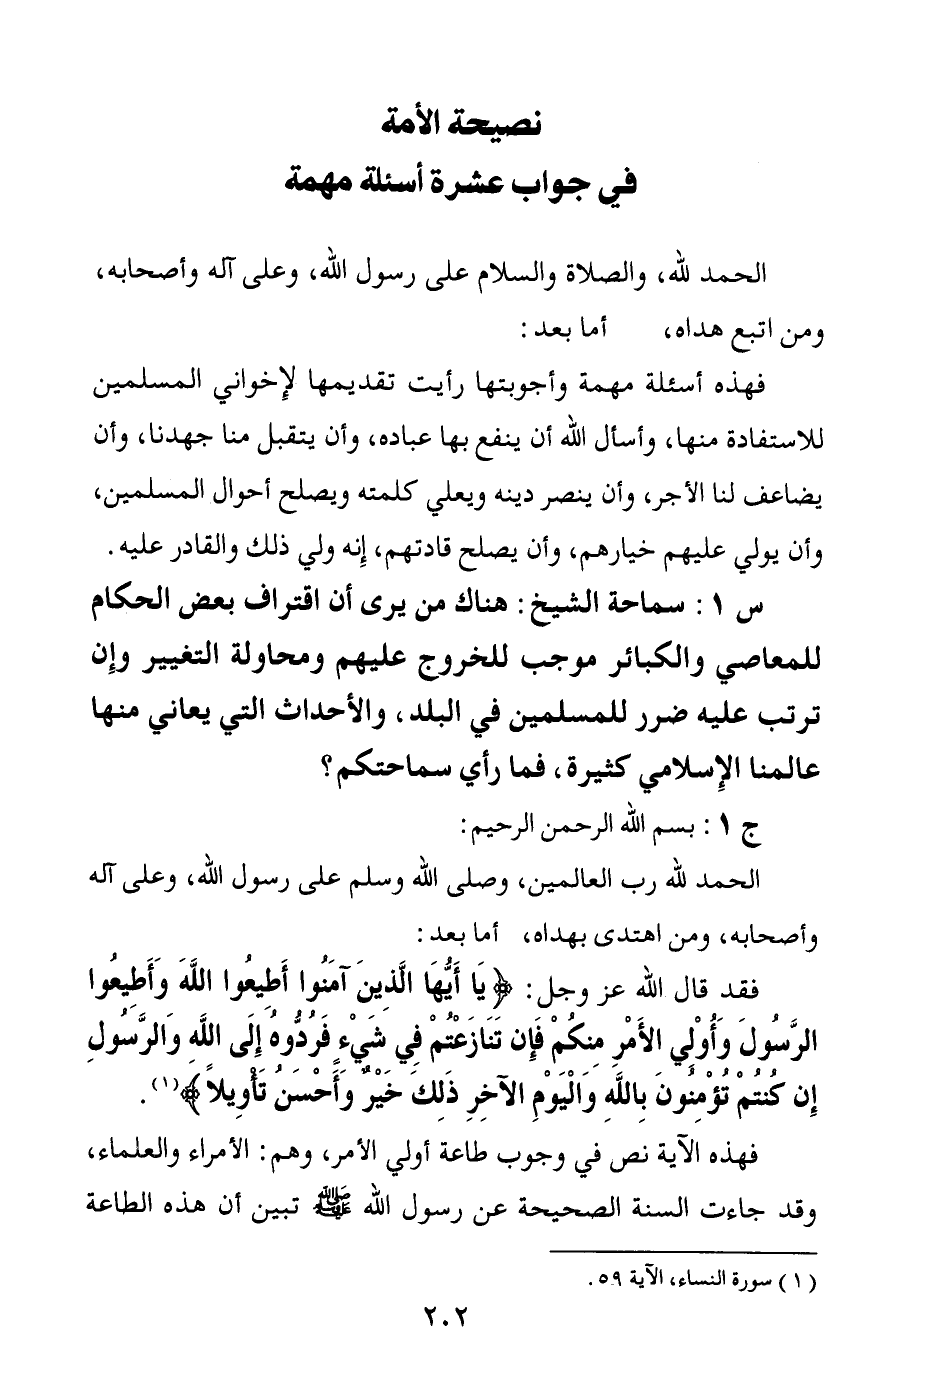 نصيحة الأمة
في جواب عشرة أسئلة مهمة
الحمد لله، والصلاة والسلام على رسول الله، وعلى آله وأصحابه،
ومن اتبع هداه، أما بعد:
فهذه أسئلة مهمة وأجوبتها رأيت تقديمها لإخواني المسلمين
للاستفادة منها، وأسأل الله أن ينفع بها عباده، وأن يتقبل منا جهدنا، وأن
يضاعف لنا الأجر، وأن ينصر دينه ويعلي كلمته ويصلح أحوال المسلمين،
وأن يولي عليهم خيارهم، وأن يصلح قادتهم، إنه ولي ذلك والقادر عليه.
س ١: سماحة الشيخ: هناك من يرى أن اقتراف بعض الحكام
للمعاصي والكبائر موجب للخروج عليهم ومحاولة التغيير وإن
ترتب عليه ضرر للمسلمين في البلد، والأحداث التي يعاني منها
عالمنا الإسلامي كثيرة، فما رأي سماحتكم؟
ج ١: بسم الله الرحمن الرحيم:
الحمد لله رب العالمين، وصلى الله وسلم على رسول الله، وعلى آله
وأصحابه، ومن اهتدى بهداه، أما بعد:
فقد قال الله عز وجل: ﴿يَا أَيُّهَا الَّذِينَ آمَنُوا أَطِيعُوا اللَّهَ وَأَطِيعُوا
الرَّسُولَ وَأُوْلِي الأَمْرِ مِنكُمْ فَإِن تَنَازَعْتُمْ فِي شَيْءٍ فَرُدُّوهُ إِلَى اللَّهِ وَالرَّسُولِ
إِن كُنتُمْ تُؤْمِنُونَ بِاللَّهِ وَالْيَوْمِ الآخِرِ ذَلِكَ خَيْرٌ وَأَحْسَنُ تَأْوِيلاً﴾(١).
فهذه الآية نص في وجوب طاعة أولي الأمر، وهم: الأمراء والعلماء،
وقد جاءت السنة الصحيحة عن رسول الله ﷺ تبين أن هذه الطاعة
(١) سورة النساء، الآية ٥٩.
٢٠٢